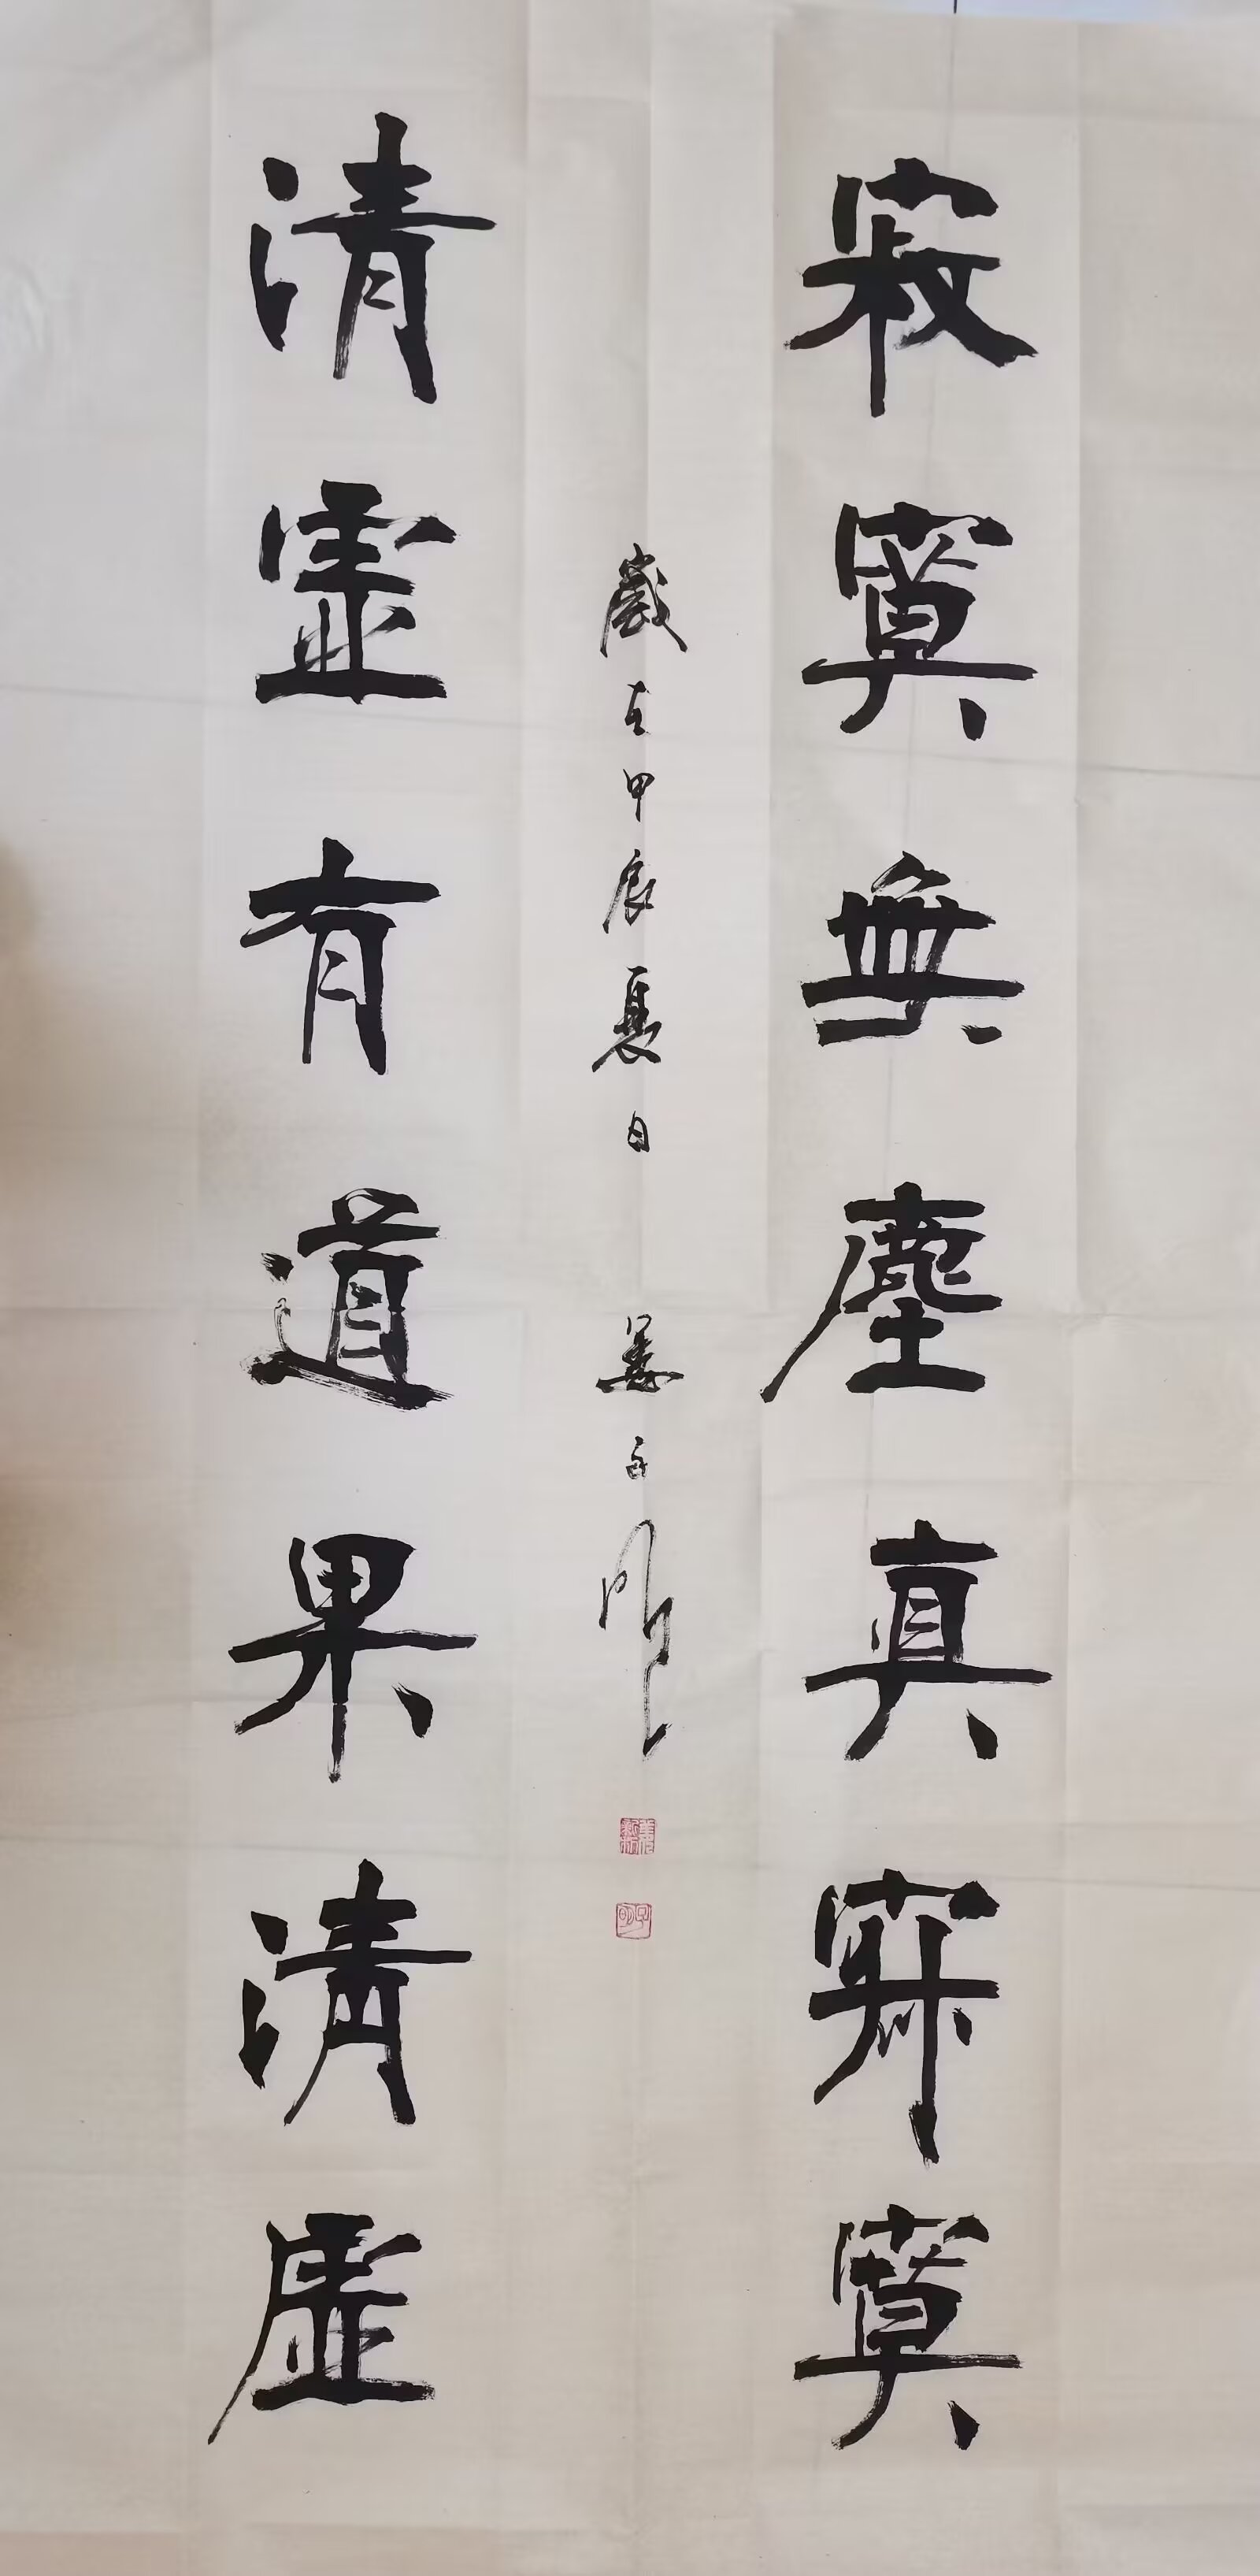 寂寞無塵真寂寞
清虛有道果清虛
歲在甲辰夏日 姜永明